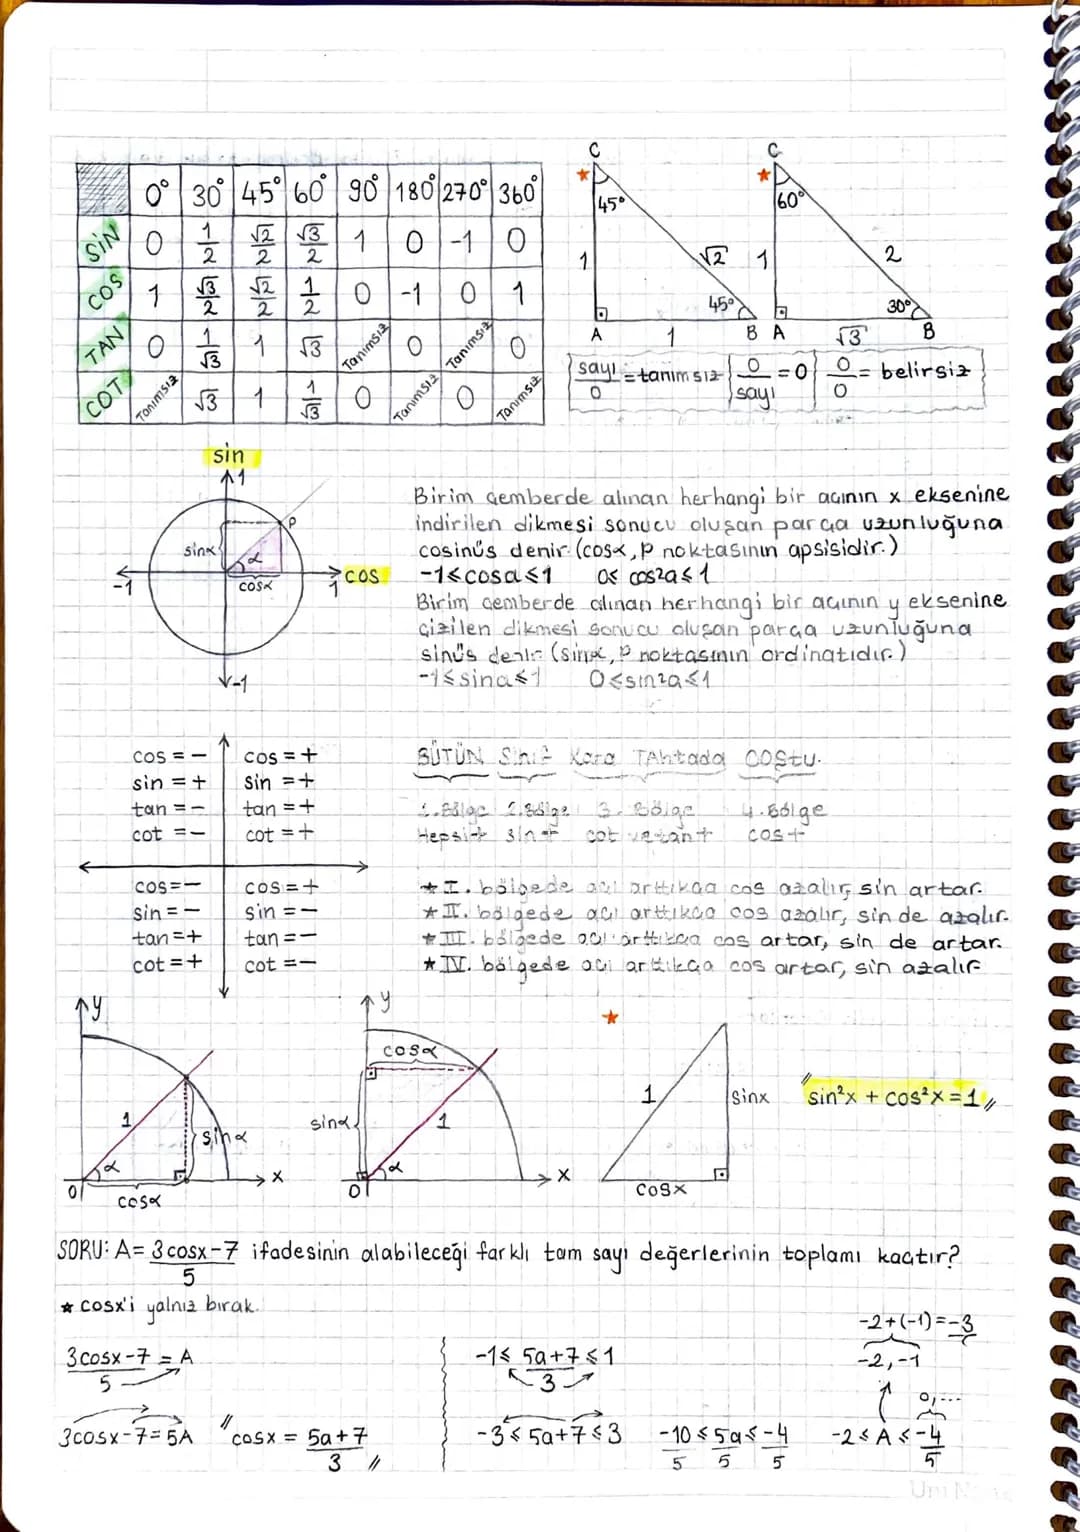 0° 30° 45° 60° 90° 180° 270° 360°
SİN 0 1/2 √2/2 √3/2 1 0 -1 0
COS 1 √3/2 √2/2 1/2 0 -1 0 1
TAN 0 1/√3 1 √3 Tanımsız 0 Tanımsız 0
COT Tanımsız √3 1 1/√3 0 Tanımsız 0 Tanımsız
C
45°
1
√2
45°
A 1 B
C
60°
1
2
30°
A √3 B
sayı/0 = tanımsız 0/sayı = 0 0/0 = belirsiz
sin
1
P
sinα
α
cosα
-1
1
cos
-1
Birim çemberde alınan herhangi bir açının x eksenine
indirilen dikmesi sonucu oluşan parça uzunluğuna
cosinüs denir. (cosα, P noktasının apsisidir.)
-1≤cosa≤1 0≤ cos²a≤1
Birim çemberde alınan herhangi bir açının y eksenine
çizilen dikmesi sonucu oluşan parça uzunluğuna
sinüs denir (sinα, P noktasının ordinatıdır.)
-1≤sina≤1 0≤sin²a≤1
cos = - cos = +
sin = + sin = +
tan = - tan = +
cot = - cot = +
cos = - cos = +
sin = - sin = -
tan = + tan = -
cot = + cot = -
BÜTÜN Sınıf Kara TAhtada COŞtu.
1.Bölge 2.Bölge 3. Bölge 4.Bölge
Hepsi+ sin+ cot ve tan+ cos+
★ I. bölgede açı arttıkça cos azalır, sin artar.
★ II. bölgede açı arttıkça cos azalır, sin de azalır.
★ III. bölgede açı arttıkça cos artar, sin de artar.
★ IV. bölgede açı arttıkça cos artar, sin azalır
y
1
sinα
α
0
x
cosα
y
cosα
sinα
1
α
0
x
★
1
sinx
cosx
"sin²x + cos²x = 1"
SORU: A= 3cosx-7/5 ifadesinin alabileceği farklı tam sayı değerlerinin toplamı kaçtır?
★ cosx'i yalnız bırak.
3cosx-7/5 = A
3cosx-7=5A "cosx = 5a+7/3"
-1≤ 5a+7/3 ≤1
-3≤ 5a+7 ≤3 -10/5 ≤ 5a/5 ≤ -4/5
-2+(-1)=-3
-2,-1
0,...
-2≤ A ≤ -4/5